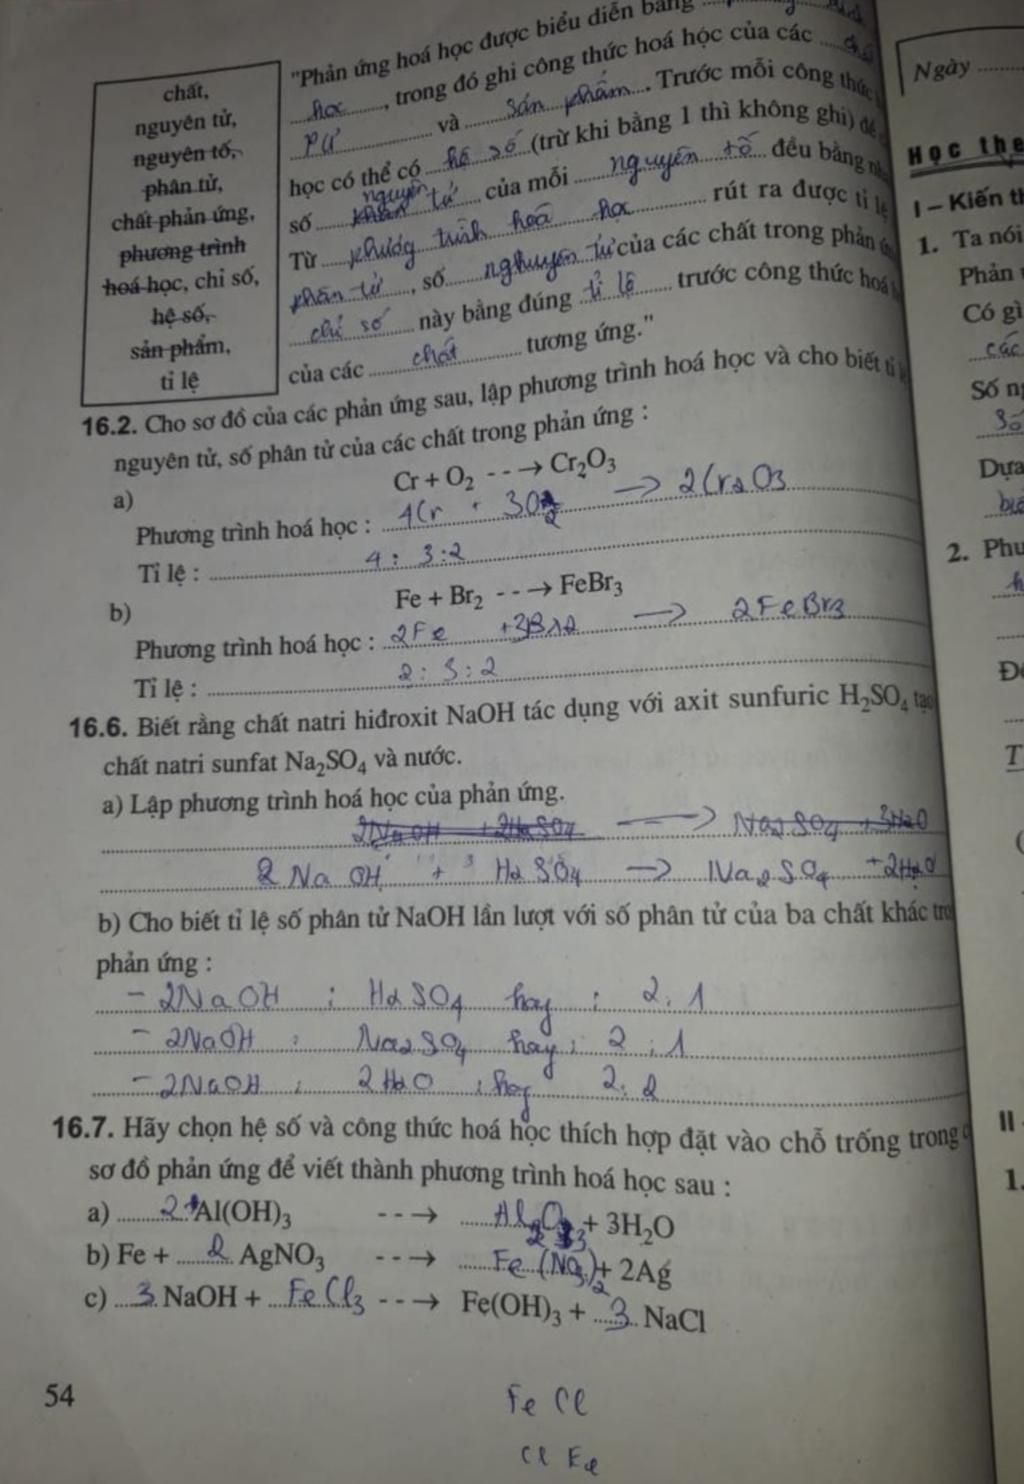 chất,
nguyên tử,
nguyên tố,
phân tử,
chất phản ứng,
phương trình
hoá học, chỉ số,
hệ số,
sản phẩm,
tỉ lệ
"Phản ứng hoá học được biểu diễn bằng
học, trong đó ghi công thức hoá học của các
PƯ và sản phẩm. Trước mỗi công thức
học có thể có hệ số (trừ khi bằng 1 thì không ghi) để
số nguyên tử của mỗi nguyên tố đều bằng
Từ phương trình hoá học rút ra được tỉ lệ
phân tử, số nguyên tử của các chất trong phản
chỉ số này bằng đúng tỉ lệ trước công thức hoá
của các chất tương ứng."
16.2. Cho sơ đồ của các phản ứng sau, lập phương trình hoá học và cho biết tỉ
nguyên tử, số phân tử của các chất trong phản ứng :
a) Cr + O2 --→ Cr2O3
Phương trình hoá học : 4Cr + 3O2 → 2Cr2O3
Tỉ lệ : 4 : 3 : 2
b) Fe + Br2 --→ FeBr3
Phương trình hoá học : 2Fe + 3Br2 → 2FeBr3
Tỉ lệ : 2 : 3 : 2
16.6. Biết rằng chất natri hiđroxit NaOH tác dụng với axit sunfuric H2SO4 tạo
chất natri sunfat Na2SO4 và nước.
a) Lập phương trình hoá học của phản ứng.
2NaOH + 2H2SO4 → Na2SO4 + 3H2O
2NaOH + H2SO4 → Na2SO4 + 2H2O
b) Cho biết tỉ lệ số phân tử NaOH lần lượt với số phân tử của ba chất khác
phản ứng :
- 2NaOH : H2SO4 hay : 2 : 1
- 2NaOH : Na2SO4 hay : 2 : 1
- 2NaOH : 2H2O : hay 2 : 2
16.7. Hãy chọn hệ số và công thức hoá học thích hợp đặt vào chỗ trống trong
sơ đồ phản ứng để viết thành phương trình hoá học sau :
a) 2 Al(OH)3 --→ Al2O3 + 3H2O
b) Fe + 2 AgNO3 --→ Fe(NO3)2 + 2Ag
c) 3 NaOH + FeCl3 --→ Fe(OH)3 + 3 NaCl
54
Fe Cl
Cl Fe
Ngày
Học the
I – Kiến
1. Ta nói
Phản
Có gì
các
Số
số
Dựa
2. Phu
h
T
II
1.